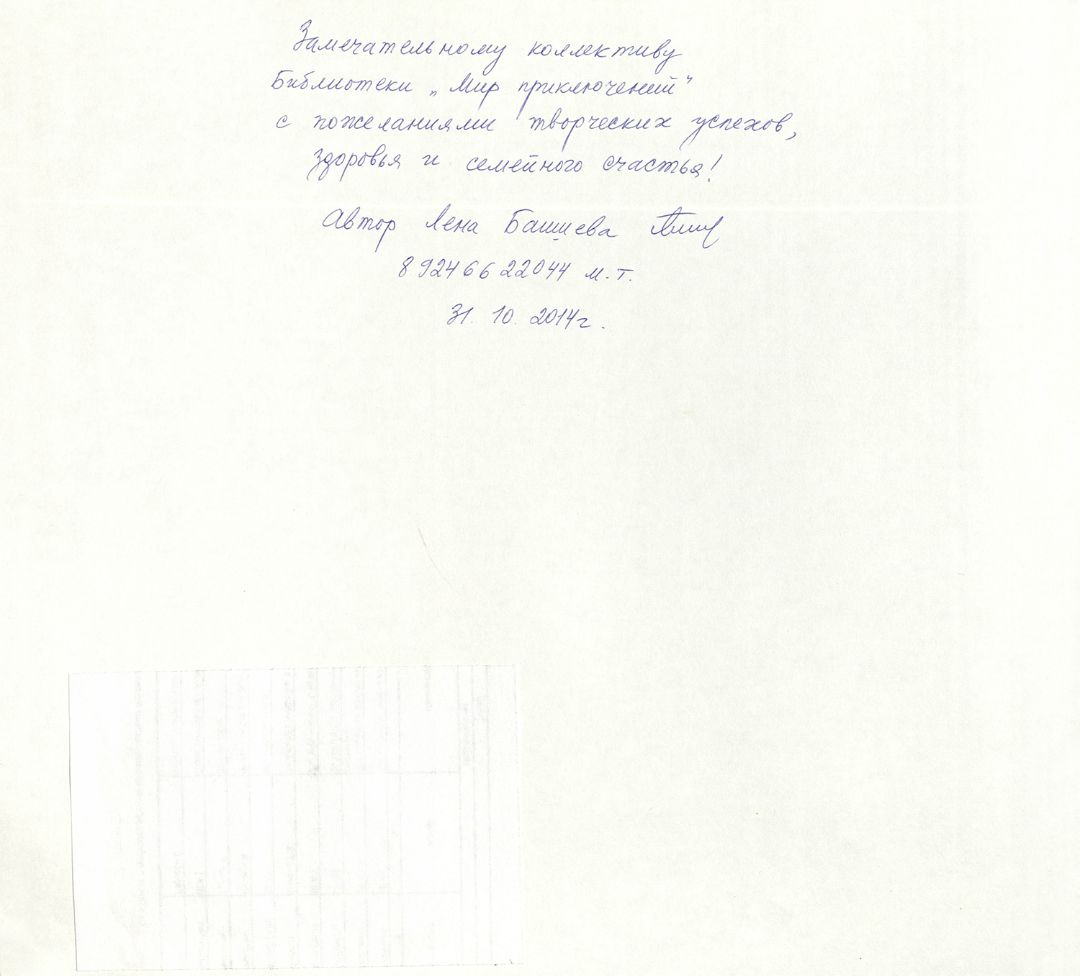 Замечательному коллективу
Библиотеки „Мир приключений"
с пожеланиями творческих успехов,
здоровья и семейного счастья!
Автор Лена Башиева
89246622044 м.т.
31. 10. 2014г.